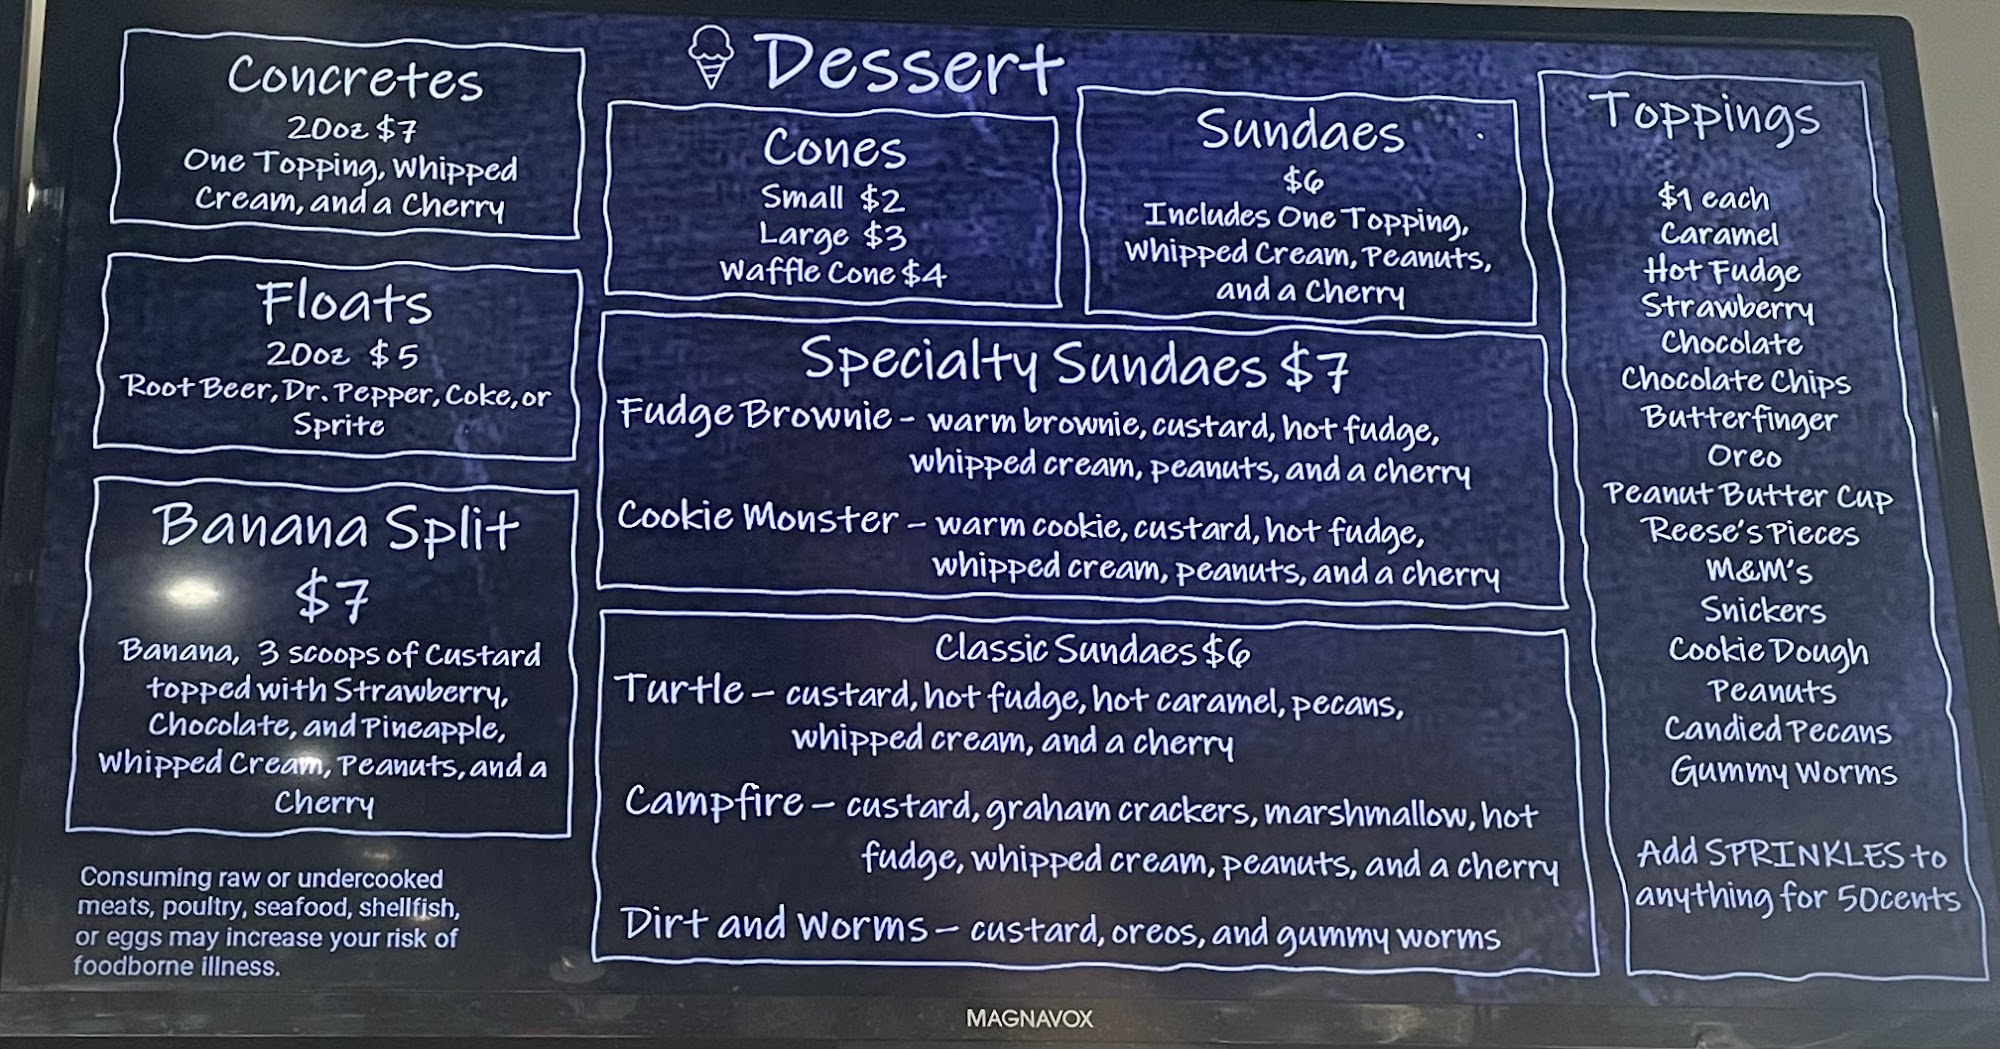 Dessert
Concretes
20oz $7
One Topping, Whipped
Cream, and a Cherry
Floats
20oz $5
Root Beer, Dr. Pepper, Coke, or
Sprite
Banana Split
$7
Banana, 3 scoops of Custard
topped with Strawberry,
Chocolate, and Pineapple,
Whipped Cream, Peanuts, and a
Cherry
Consuming raw or undercooked
meats, poultry, seafood, shellfish,
or eggs may increase your risk of
foodborne illness.
Cones
Small $2
Large $3
Waffle Cone $4
Sundaes
$6
Includes One Topping,
Whipped Cream, Peanuts,
and a Cherry
Specialty Sundaes $7
Fudge Brownie - warm brownie, custard, hot fudge,
whipped cream, peanuts, and a cherry
Cookie Monster - warm cookie, custard, hot fudge,
whipped cream, peanuts, and a cherry
Classic Sundaes $6
Turtle - custard, hot fudge, hot caramel, pecans,
whipped cream, and a cherry
Campfire - custard, graham crackers, marshmallow, hot
fudge, whipped cream, peanuts, and a cherry
Dirt and Worms - custard, oreos, and gummy worms
Toppings
$1 each
Caramel
Hot Fudge
Strawberry
Chocolate
Chocolate Chips
Butterfinger
Oreo
Peanut Butter Cup
Reese's Pieces
M&M's
Snickers
Cookie Dough
Peanuts
Candied Pecans
Gummy Worms
Add SPRINKLES to
anything for 50cents
MAGNAVOX